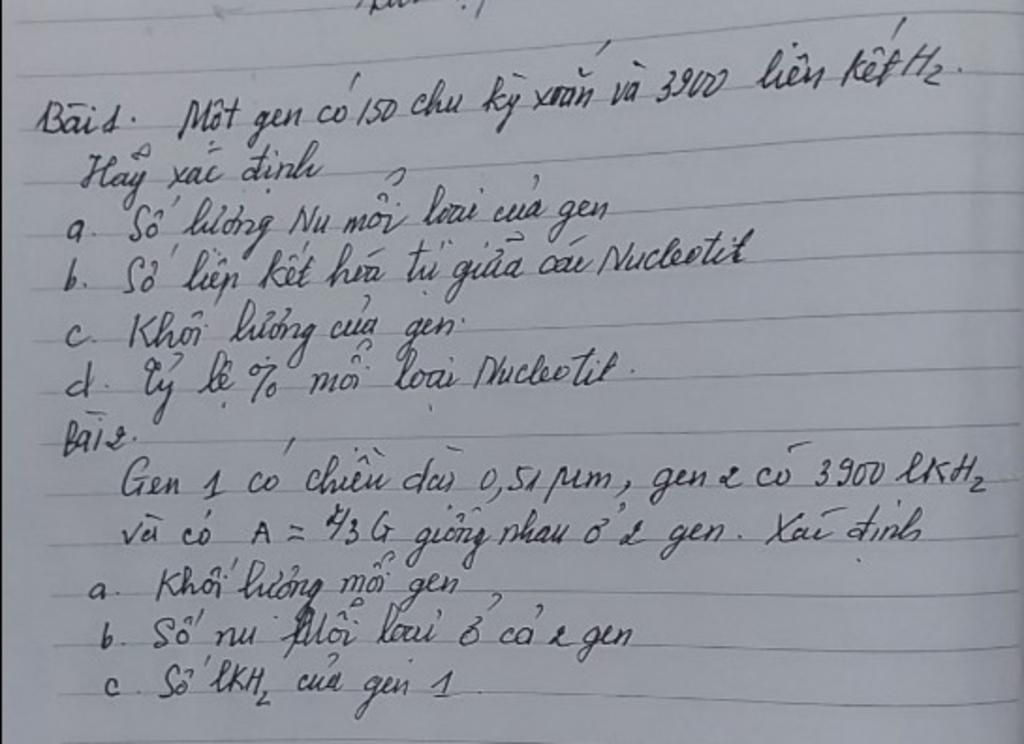 Bài 1. Một gen có 150 chu kỳ xoắn và 3900 liên kết H₂.
Hãy xác định
a. Số lượng Nu mỗi loại của gen
b. Số liên kết hoá trị giữa các Nucleotit
c. Khối lượng của gen.
d. Tỷ lệ % mỗi loại Nucleotit.
Bài 2.
Gen 1 có chiều dài 0,51 µm, gen 2 có 3900 lKH₂
và có A = 2/3 G giống nhau ở 2 gen. Xác định
a. Khối lượng mỗi gen
b. Số nu mỗi loại ở cả 2 gen
c. Số lKH₂ của gen 1.